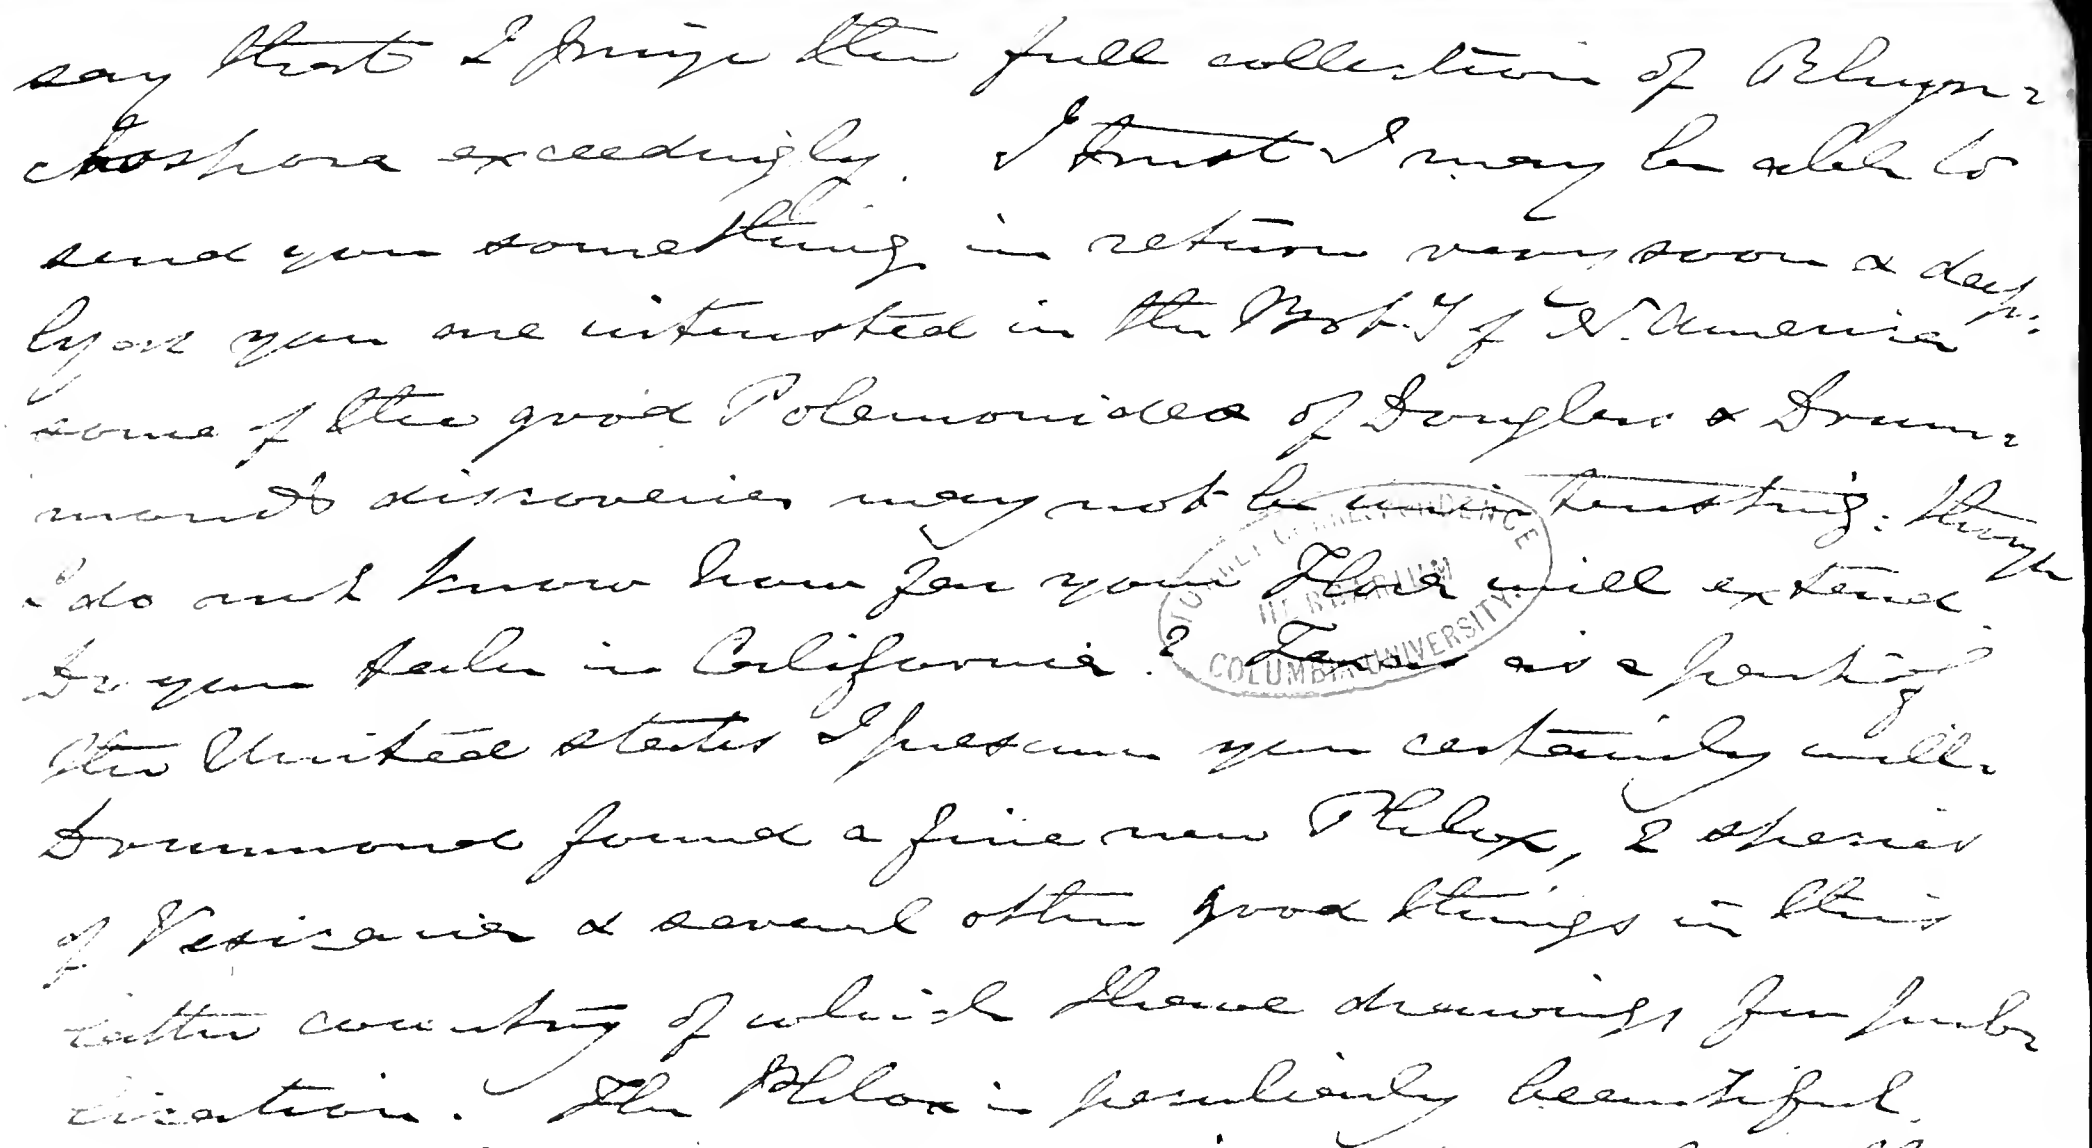 say that I prize the full collection of Rhyn=
chospora exceedingly. I trust I may be able to
send you something in return very soon & deep=
ly as you are interested in the Bot.y of N. America
some of the good Polemonidea of Douglas & Drum=
monds discoveries may not be uninteresting: though
I do not know how far your Flora will extend
Do you take in California? Texas as a part of
the United States I presume you certainly will.
Drummond found a fine new Phlox, 2 species
of Vesicaria & several other good things in this
latter country of which I have drawings for pub=
lication. The Phlox is peculiarly beautiful.
TORREY CORRESPONDENCE
HERBARIUM
COLUMBIA UNIVERSITY.